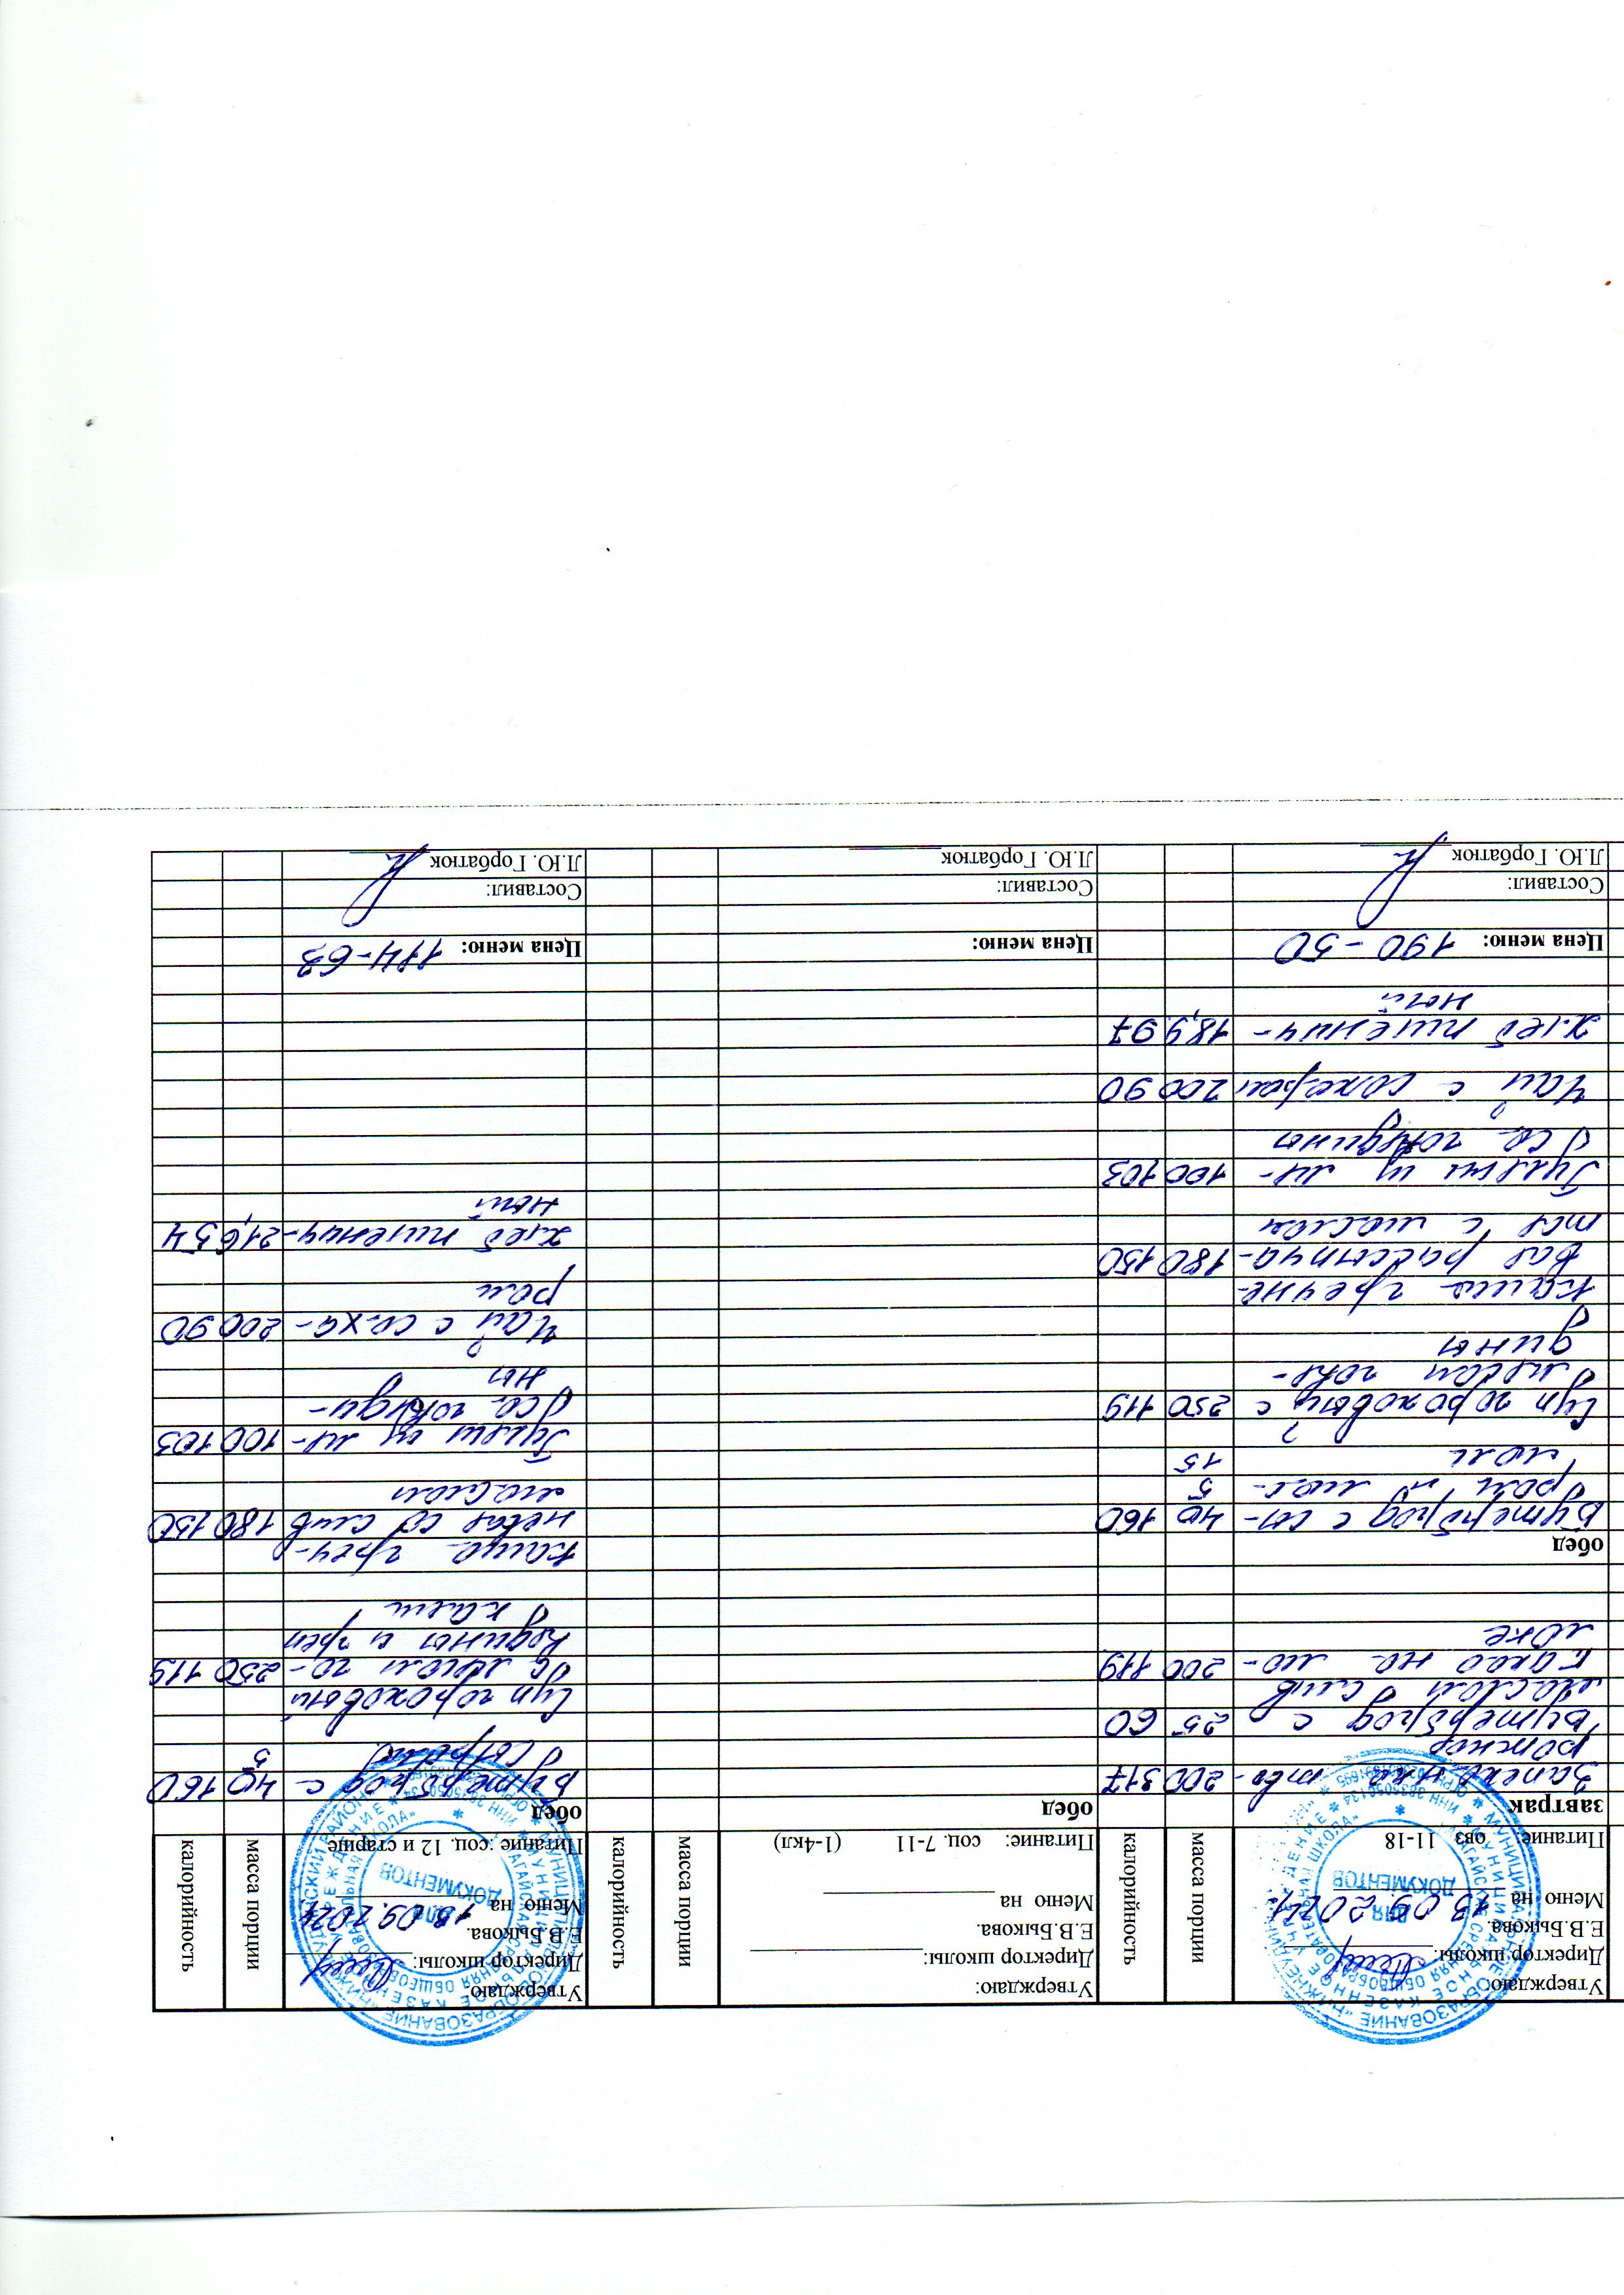 Утверждаю:
Директор школы:
Е.В.Быкова.
Меню на 13.09.2024
Питание: овз 11-18
масса порции
калорийность
завтрак
Запеканка тво- 200 317
рожная
Бутерброд с 25 60
маслом слив
Какао на мо- 200 119
локе
обед
Бутерброд с сы- 40 160
ром и мас- 5
лом 15
Суп гороховый с 250 119
мясом говя-
дины
Каша гречне-
вая рассыпча- 180 150
тая с маслом
Гуляш из мя- 100 103
са говядины
Чай с сахаром 200 90
Хлеб пшенич- 18,9 97
ный
Цена меню: 190-50
Составил:
Л.Ю. Горбатюк
Утверждаю:
Директор школы:
Е.В.Быкова.
Меню на
Питание: соц. 7-11 (1-4кл)
масса порции
калорийность
обед
Цена меню:
Составил:
Л.Ю. Горбатюк
Утверждаю:
Директор школы:
Е.В.Быкова.
Меню на 13.09.2024
Питание :соц. 12 и старше
масса порции
калорийность
обед
Бутерброд с 40 160
сыром 5
Суп гороховый
с мясом го- 250 119
вядины и грен
ками
Каша греч-
невая со слив 180 150
маслом
Гуляш из мя- 100 103
са говяди-
ны
Чай с саха- 200 90
ром
Хлеб пшенич- 21,6 54
ный
Цена меню: 114-63
Составил:
Л.Ю. Горбатюк
ДЛЯ
ДОКУМЕНТОВ
ДЛЯ
ДОКУМЕНТОВ